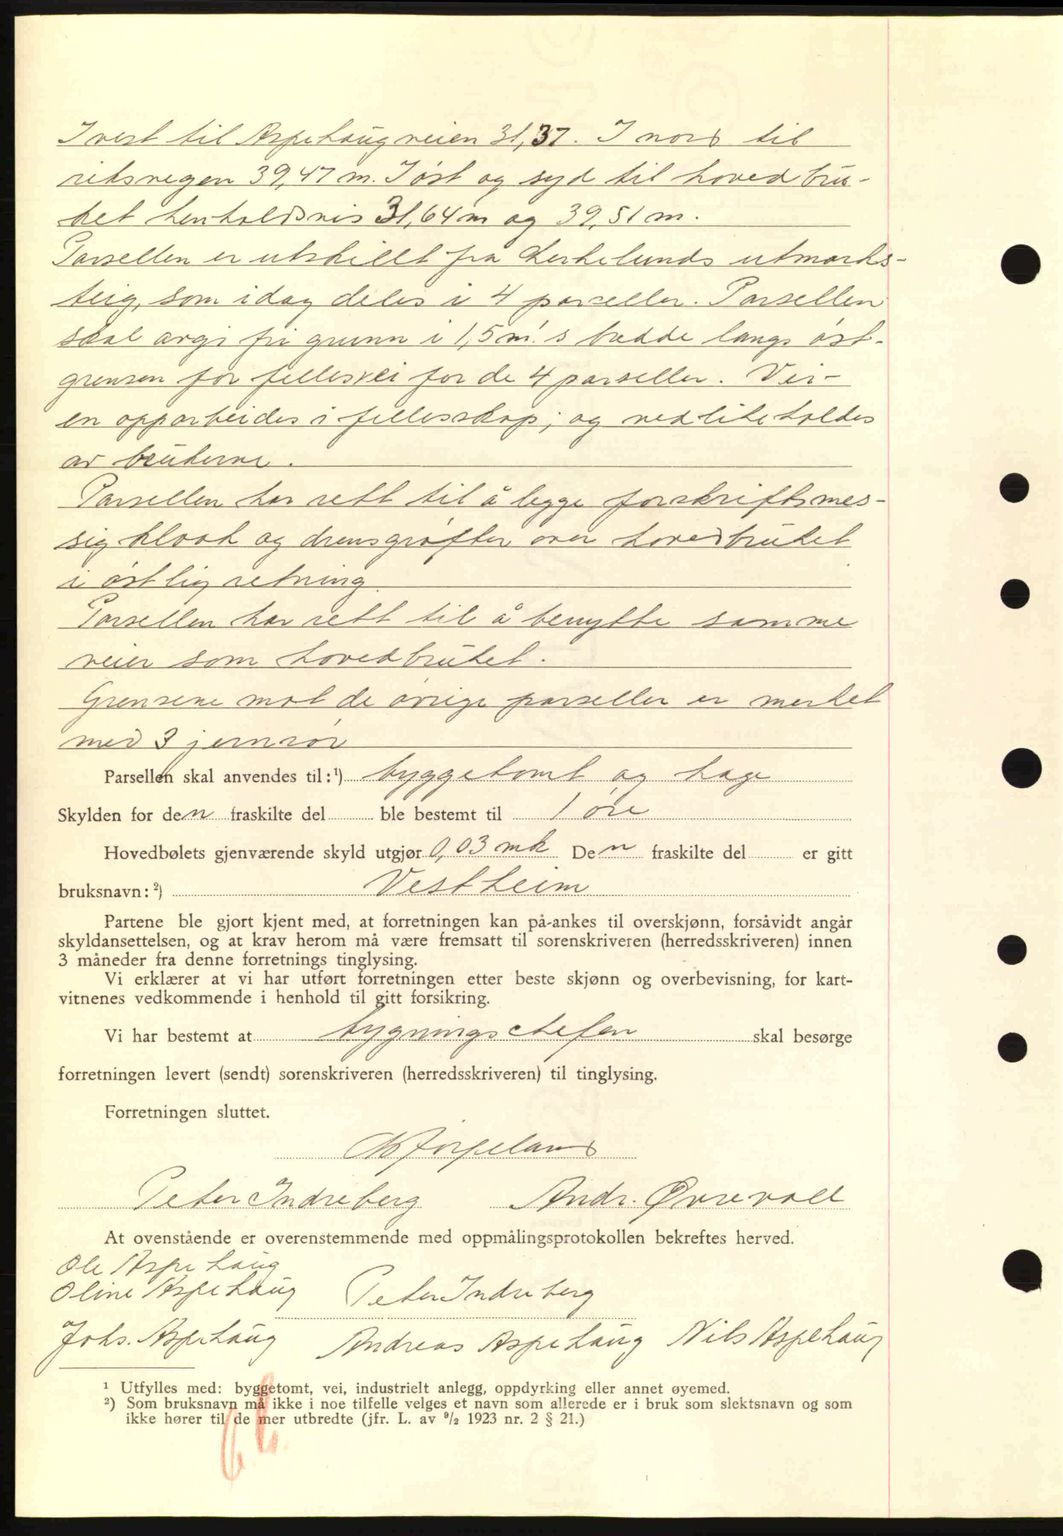 I vest til Aspehaugveien 31,37. I nord til
riksvegen 39,47 m. I øst og syd til hovedbru-
ket henholdsvis 31,64 m og 39,51 m.
Parsellen er utskillt fra Lerkelunds utmarks-
teig, som idag deles i 4 parseller. Parsellen
skal avgi fri grunn i 1,5 m's bredde langs øst-
grensen for fellesvei for de 4 parseller. Vei-
en opparbeides i fellesskap; og vedlikeholdes
av brukerne.
Parsellen har rett til å legge forskriftsmes-
sig kloak og drensgrøfter over hovedbruket
i østlig retning.
Parsellen har rett til å benytte samme
veier som hovedbruket.
Grensene mot de øvrige parseller er merket
med 3 jernrør
Parsellen skal anvendes til:¹) byggetomt og hage
Skylden for den fraskilte del ble bestemt til 1 øre
Hovedbølets gjenværende skyld utgjør 0,03 mk Den fraskilte del er gitt
bruksnavn:²) Vestheim
Partene ble gjort kjent med, at forretningen kan på-ankes til overskjønn, forsåvidt angår
skyldansettelsen, og at krav herom må være fremsatt til sorenskriveren (herredsskriveren) innen
3 måneder fra denne forretnings tinglysing.
Vi erklærer at vi har utført forretningen etter beste skjønn og overbevisning, for kart-
vitnenes vedkommende i henhold til gitt forsikring.
Vi har bestemt at bygningschefen skal besørge
forretningen levert (sendt) sorenskriveren (herredsskriveren) til tinglysing.
Forretningen sluttet.
Peter Indreberg Andr. Øvrevoll
At ovenstående er overenstemmende med oppmålingsprotokollen bekreftes herved.
Ole Aspehaug
Oline Aspehaug Peter Indreberg
Johs. Aspehaug Andreas Aspehaug Nils Aspehaug
¹ Utfylles med: byggetomt, vei, industrielt anlegg, oppdyrking eller annet øyemed.
²) Som bruksnavn må ikke i noe tilfelle velges et navn som allerede er i bruk som slektsnavn og som
ikke hører til de mer utbredte (jfr. L. av ⁹/₂ 1923 nr. 2 § 21.)